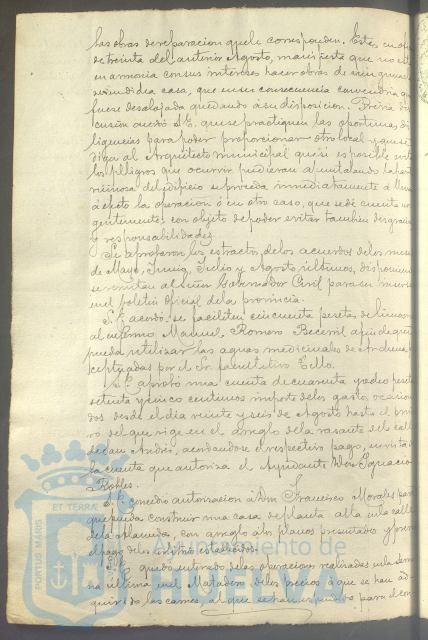 las obras de reparacion que le corresponden. Este, en oficio
de treinta del anterior Agosto, manifiesta que no está
en armonia con sus intereses hacer obras de ninguna
en dicha casa, que en su consecuencia convendria, que
fuese desalojada quedando á su disposicion. Previa dis
cusion acordó S.E. que se practiquen las oportunas di
ligencias para poder proporcionar otro local y que se
diga al Arquitecto municipal que si es posible evitar
los peligros que ocurrir pudieran apuntalando la parte
ruinosa del edificio se proceda inmediatamente á llevar
á efecto la operacion ó en otro caso, que se dé cuenta ur
gentemente, con objeto de poder evitar tambien desgracias
ó responsabilidades.
Se aprobaron los extractos de los acuerdos de los meses
de Mayo, Junio, Julio y Agosto últimos, disponiendo
se remitan al Señor Gobernador Civil para su insercion
en el boletin Oficial de la provincia.
S.E. acordó se faciliten cincuenta pesetas de limosna
al enfermo Manuel Romero Becerril a fin de que
pueda utilizar las aguas medicinales de
por el Sr. facultativo Tello.
S.E. aprobó una cuenta de cuarenta y ocho pesetas
setenta y cinco centimos importe de los gastos ocasiona
dos desde el dia veinte y seis de Agosto hasta el prime
ro del que rige en el arreglo de la rasante de la calle
de San Andrés, acordandose el respectivo pago, en vista de
la cuenta que autoriza el Ayudante Don Ignacio
Robles.
S.E. concedió autorizacion á Don Francisco Morales para
que pueda construir una casa de planta alta en la calle
de la Palma, con arreglo á los planos presentados y previo
el pago de los arbitrios establecidos.
S.E. quedó enterado de las operaciones realizadas en la sema
na ultima en el Matadero, de los precios á que se han ad
quirido las carnes, al que se han expendido para el con
PORTUS MARIS
ET TERRAE
Ayuntamiento de
HUELVA